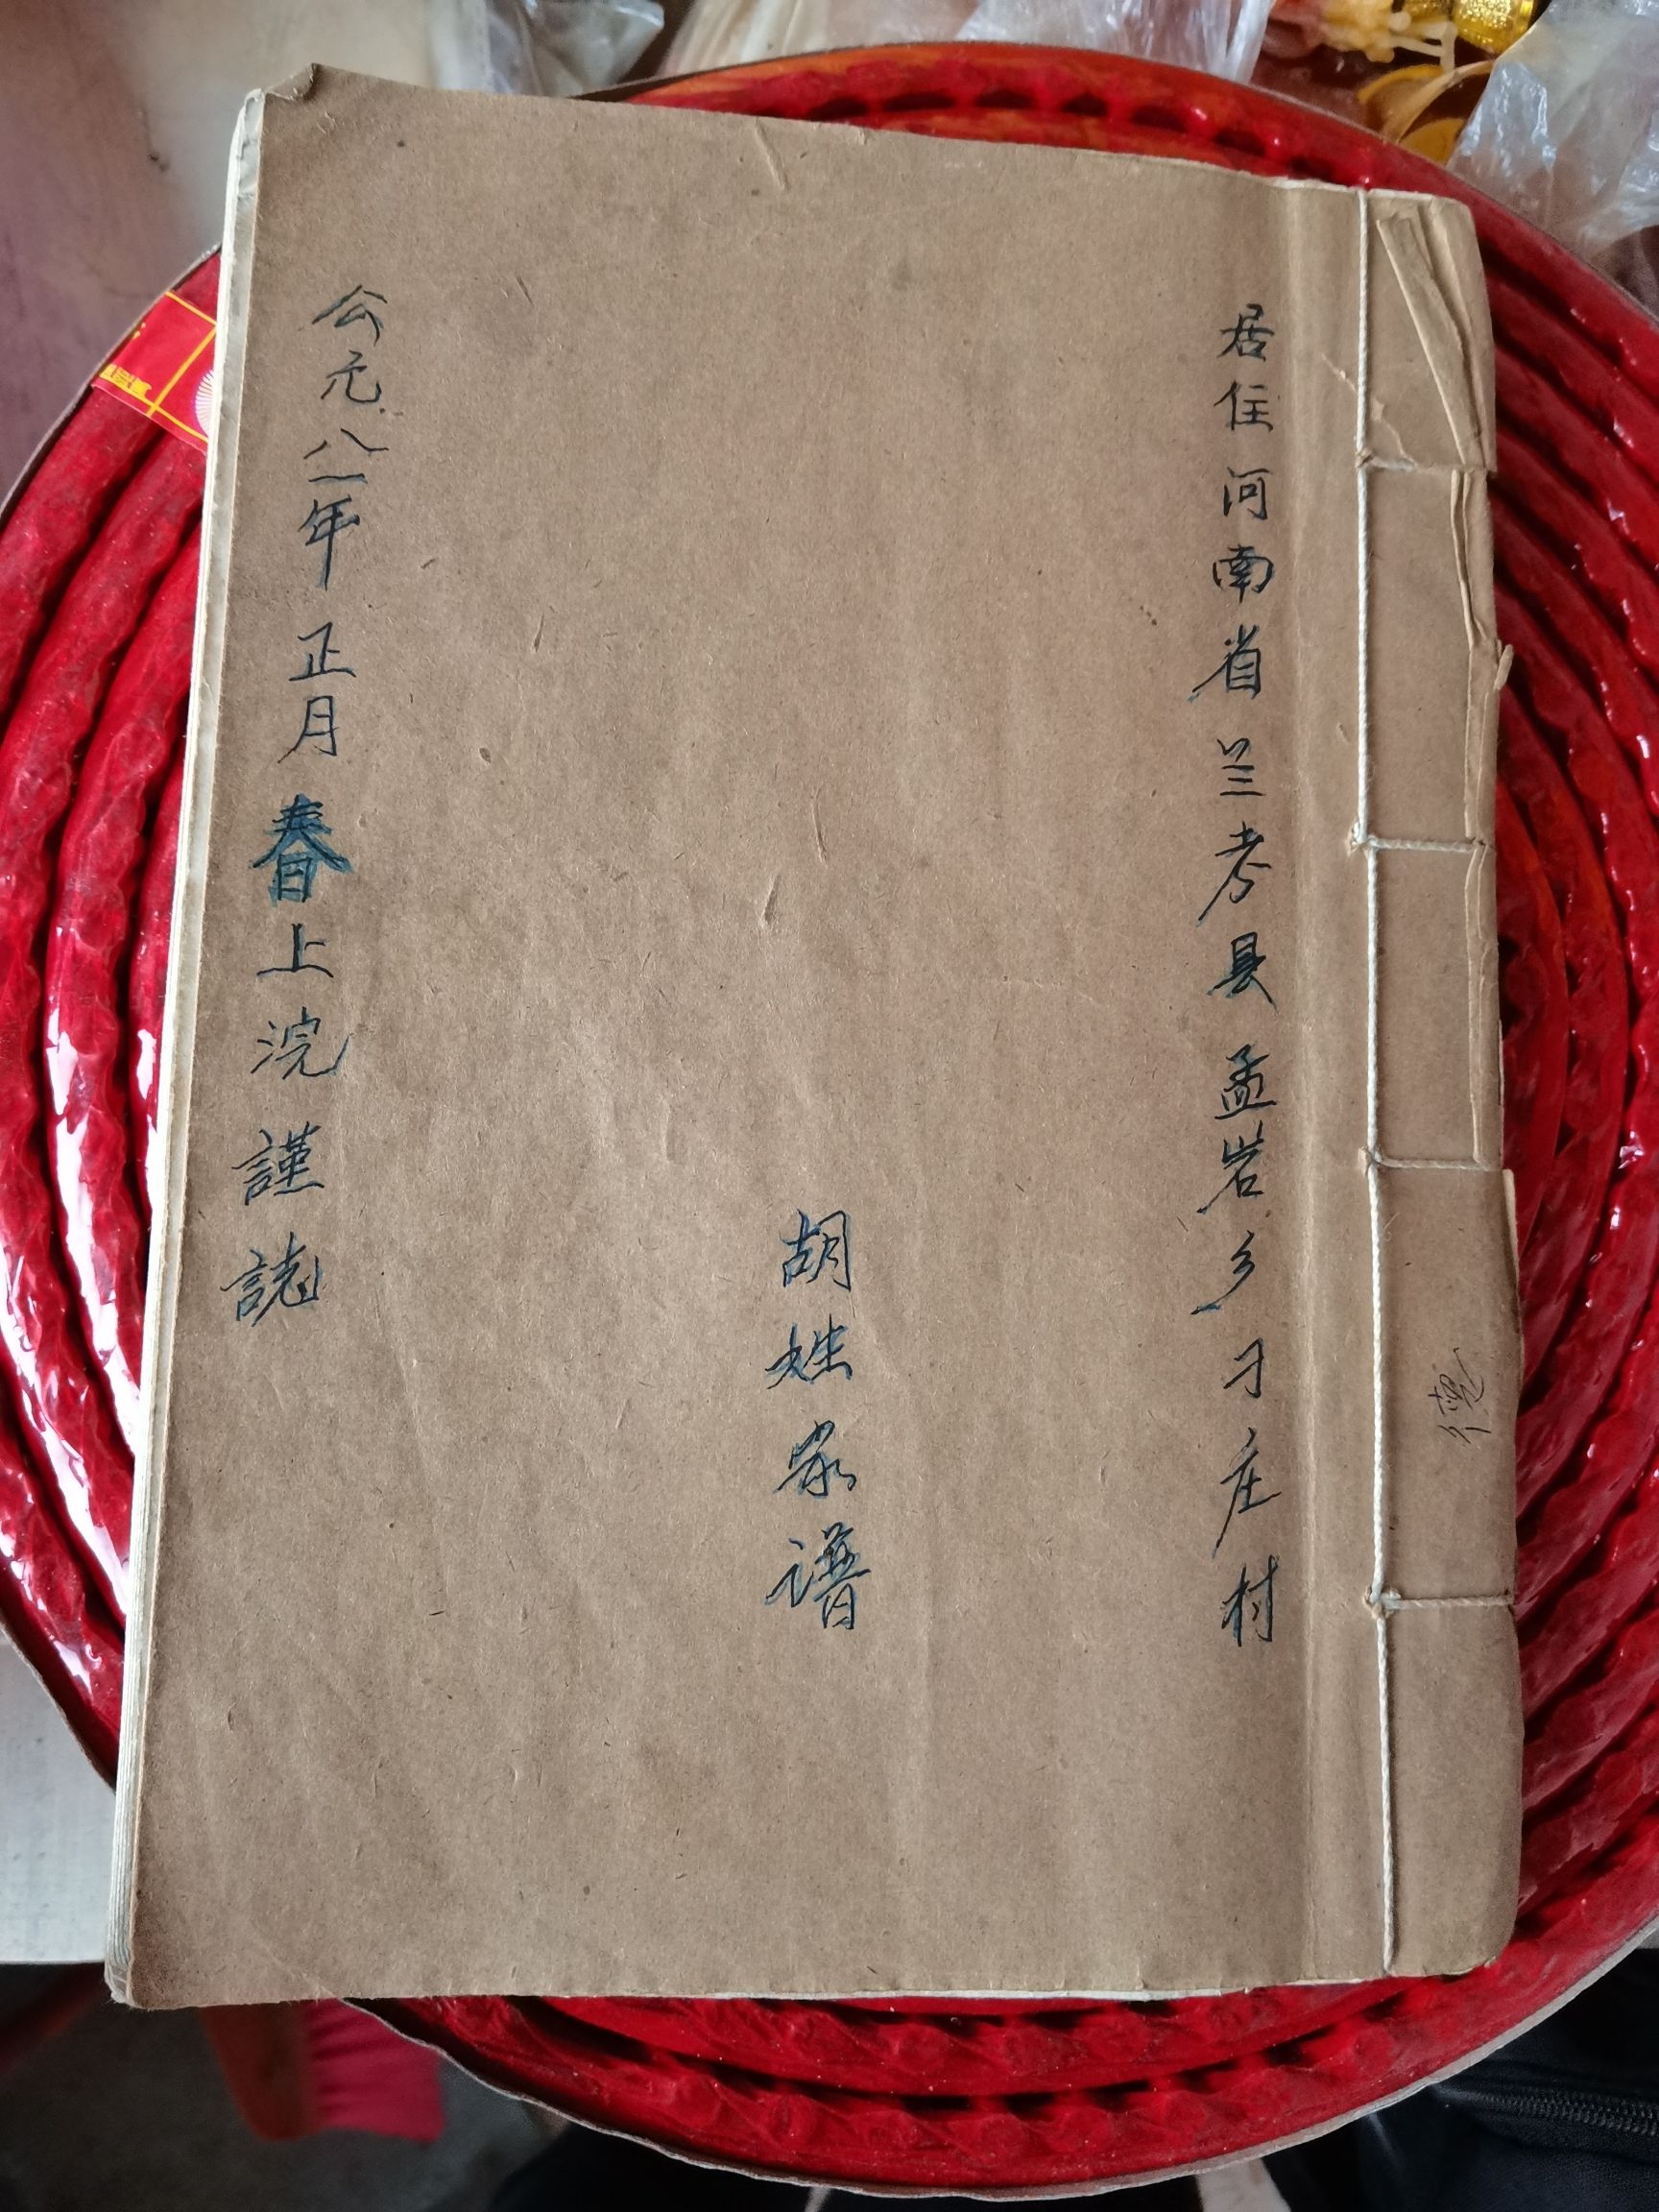 居住河南省兰考县孟岩乡刁庄村
胡姓家谱
公元八一年正月春上浣謹誌
德